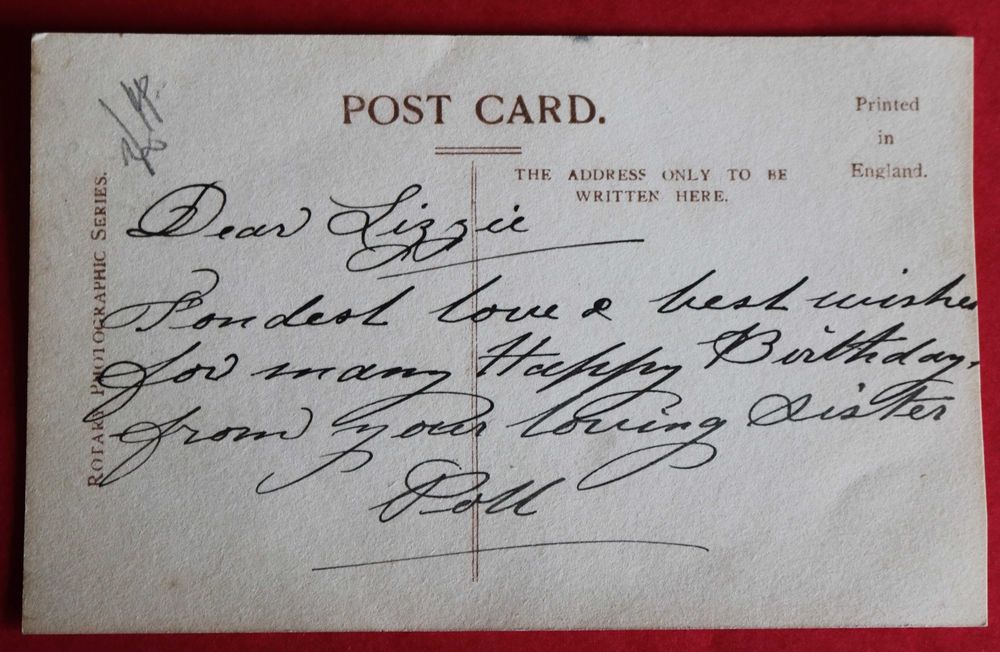 POST CARD.
Printed
in
England.
THE ADDRESS ONLY TO BE
WRITTEN HERE.
ROTARY PHOTOGRAPHIC SERIES.
Dear Lizzie
Fondest love & best wishes
for many Happy Birthday.
from your loving Sister
Poll